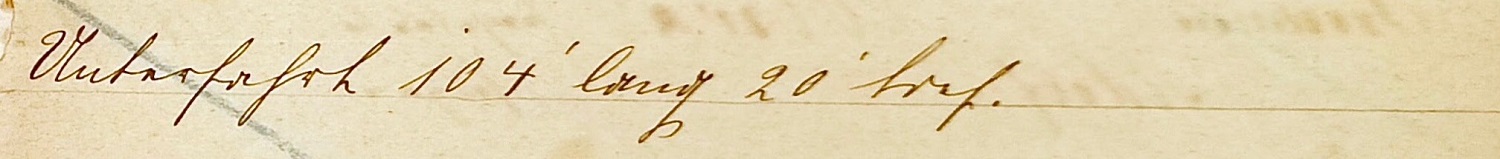 Unterfahrt 104' lang 20' tief.